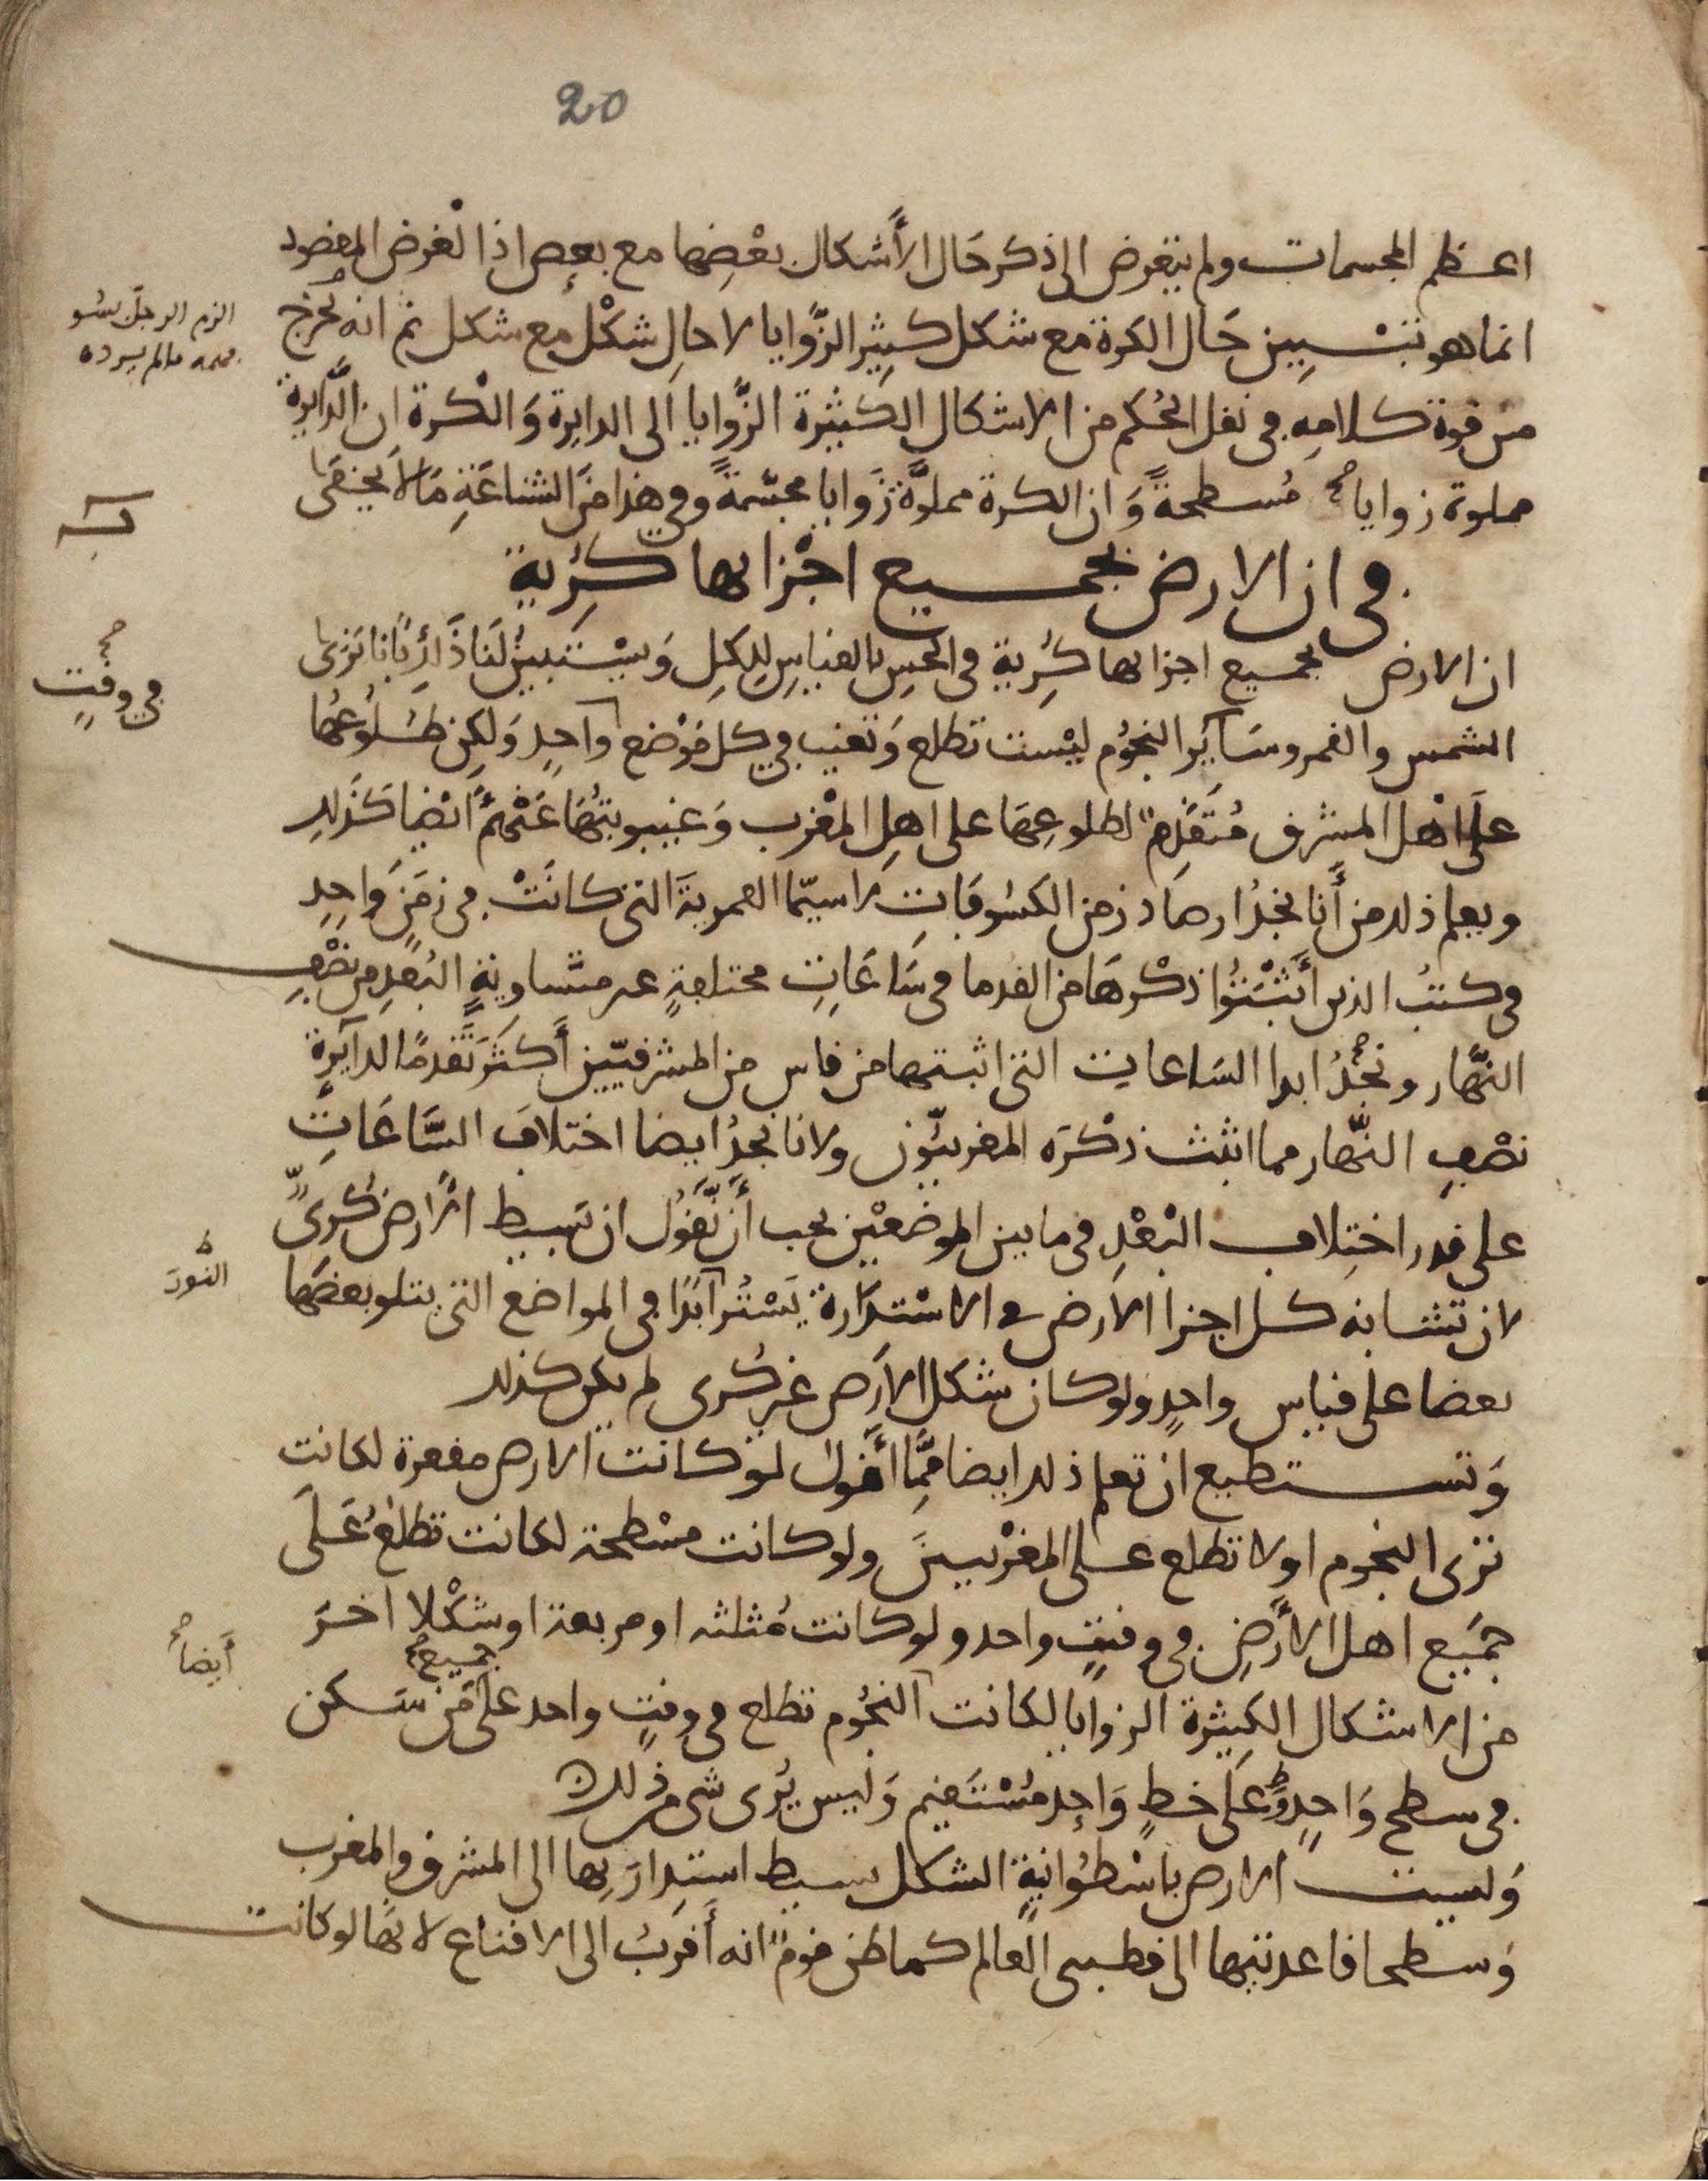 20
اعظم المجسمات ولم يتعرض الى ذكر حَال الأشكال بعْضِها مع بعض اذا لغرض المقصود
انما هو تبْيين حَال الكرة مع شكل كثير الزّوايا لا حالِ شكْل مع شكل ثم انه يُخرج
من قوة كلامِه في نقل الحُكم من الاشكال الكثيرة الزّوايا الى الدايرة وَالكرة ان الدَّايرة
مملوة زوايا مُسطحةً وَان الكرة مملوَّة زَوايا مجسّمةً وفي هذا منَ الشناعَةِ مَا لا يخفَى
في ان الارض بجميع اجْزايها كُرِية
ان الارض بجميع اجزايها كُرِية في الحسِ بالقياسِ للكلِ وَيسْتبينُ لنَا ذَلك بانا نرَى
الشمس والقمر وسَاير النجوُم ليْست تطلع وَتغيب في كل مَوْضع واحدٍ وَلكن طلُوعُها
علَى اهْل المشرق مُتقدِم لطلوعِهَا على اهلِ المغْرب وَغيبوبتُهَا عَنْهُمُ ايْضا كَذلك
ويعلم ذلك من أَنا نجدُ ارصَاد زمن الكسُوفَاتِ لا سيّما القمريةَ التي كانَتْ في زمَنٍ وَاحِدٍ
في كتبُ الذين أَثبْتُوا ذكْرهَا من القدما في سَاعَاتٍ مختلفةٍ غير متساويةِ البُعْدِ من نصْفِ
النّهار ونَجُدُ ابدا السَاعات التي اثبتها من قاس من المشرقيّين أَكثَر تَقدمًا لدَايرةِ
نصْفِ النّهار مما اثبت ذكْرَه المغربيُّون ولانا نجدُ ايضا اختلافَ السَّاعَاتِ
على قدر اختِلافِ البْعْدِ في ما بين الموضعيْن يجب أَن نّقوُل ان بَسيط الارض كُرىٌّ
لان تشابه كل اجزا الارض في الاسْتدَارة يَسْتُر ابَدًا في المواضع التي يتلو بعضَها
بعضا على قياس واحدٍ ولو كان شكل الارض غير كُرى لم يكن كذلك
وَتستطيع ان تعلم ذلك ايضا مِمَّا أَقول لوْ كانت الارض مقعرة لكانت
ترى النجوم اولا تطلع على المغْربيينَ ولو كانت مسْطحة لكانت تطلعُ عَلَى
جَميع اهل الأرَضِ في وقتٍ واحد ولو كانت مُثلثه او مربعة او شكْلا اخرَ
جميع
من الاشكال الكِثيرة الزوايا لكانت النجُوم تطلع في وقتٍ واحد علَى مَن سَكن
في سطح وَاحدٍ وَعَلَى خطٍ وَاحدٍ مُسْتَقيم وَليس يُرى شي من ذلك
وَليست الارض باسْطوُانيةِ الشكل بسيط استدارَتِها الى المشرق والمغرب
وَسطحا قاعدتيها الى قطبي العالم كما ظن قومٌ انه أَقربُ الى الاقناع لانَها لو كانت
في وقتٍ
النوُرَ
أَيضا